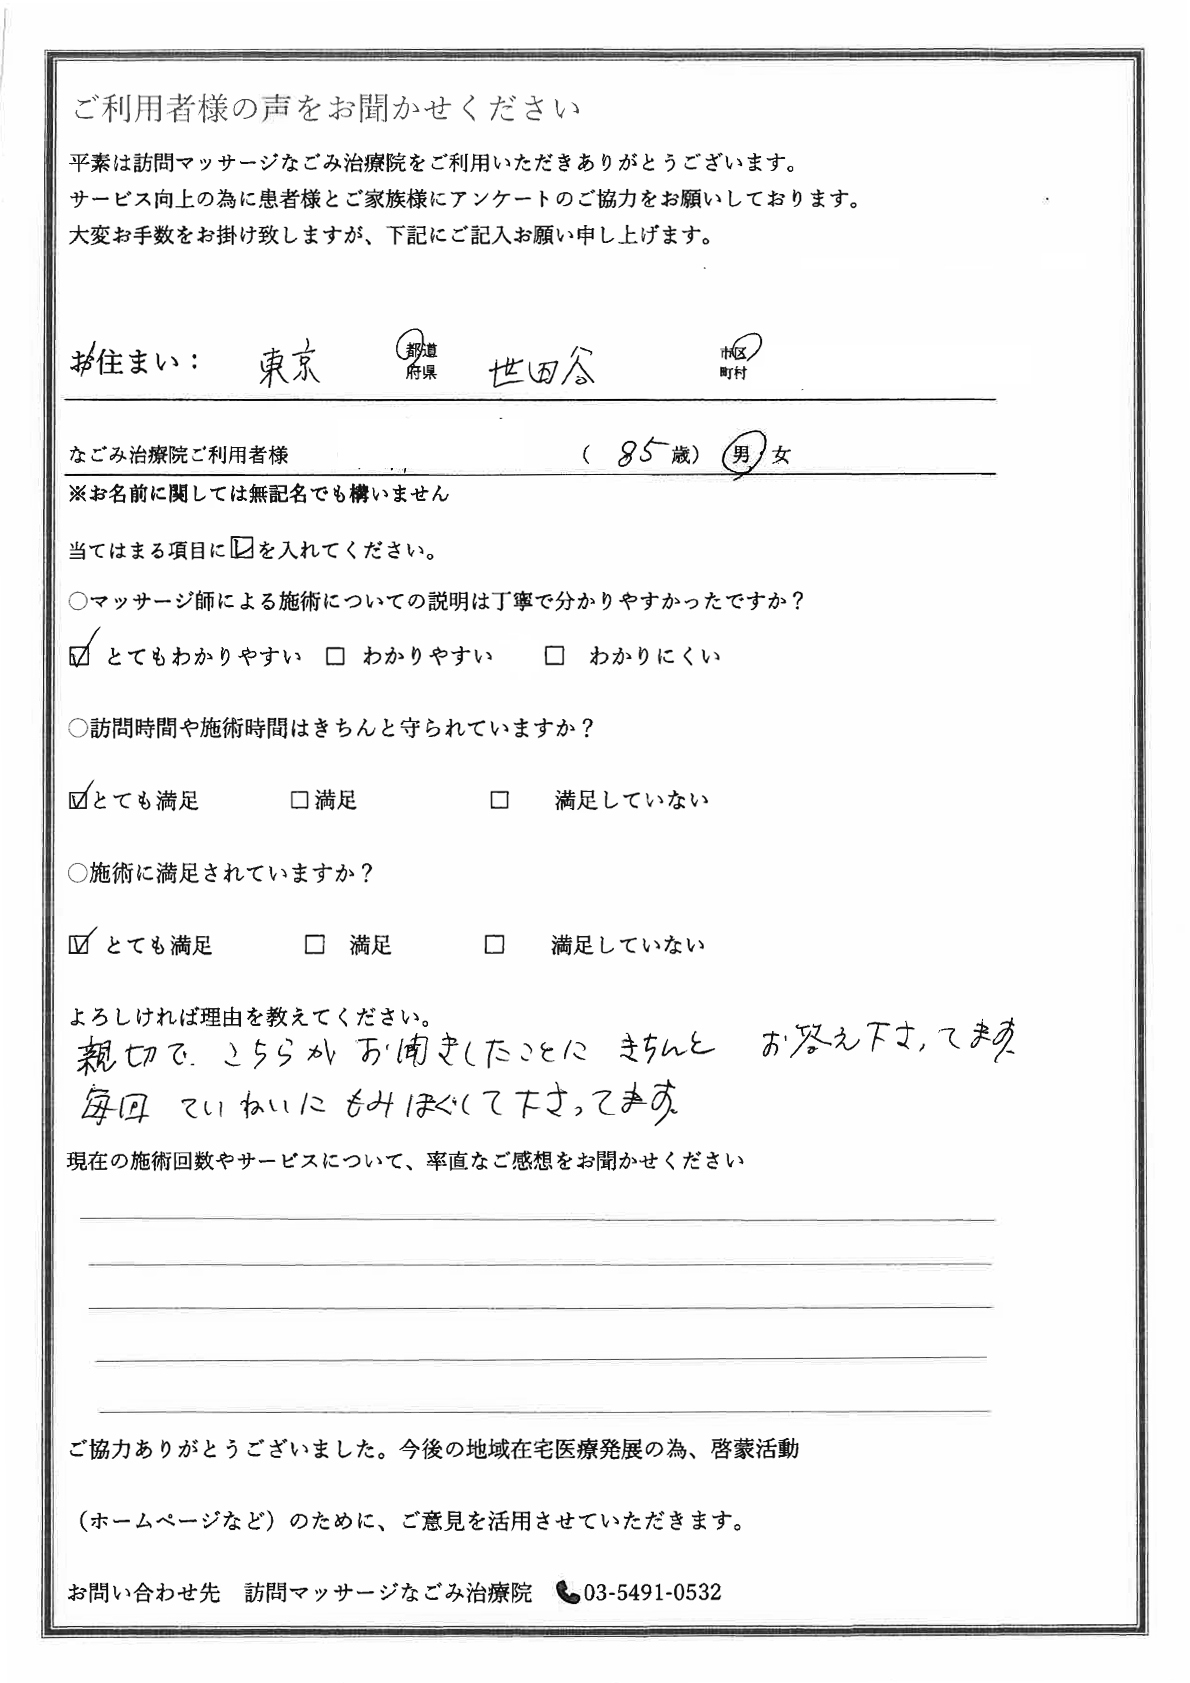 ご利用者様の声をお聞かせください
平素は訪問マッサージなごみ治療院をご利用いただきありがとうございます。
サービス向上の為に患者様とご家族様にアンケートのご協力をお願いしております。
大変お手数をお掛け致しますが、下記にご記入お願い申し上げます。
お住まい： 東京 都道府県 世田谷 市区町村
なごみ治療院ご利用者様 （ 85 歳） 男 女
※お名前に関しては無記名でも構いません
当てはまる項目に☑を入れてください。
○マッサージ師による施術についての説明は丁寧で分かりやすかったですか？
☑ とてもわかりやすい □ わかりやすい □ わかりにくい
○訪問時間や施術時間はきちんと守られていますか？
☑とても満足 □満足 □ 満足していない
○施術に満足されていますか？
☑ とても満足 □ 満足 □ 満足していない
よろしければ理由を教えてください。
親切で、こちらがお聞きしたことに きちんと お答え下さってます。
毎回 ていねいに もみほぐして下さってます。
現在の施術回数やサービスについて、率直なご感想をお聞かせください
ご協力ありがとうございました。今後の地域在宅医療発展の為、啓蒙活動
（ホームページなど）のために、ご意見を活用させていただきます。
お問い合わせ先 訪問マッサージなごみ治療院 📞03-5491-0532